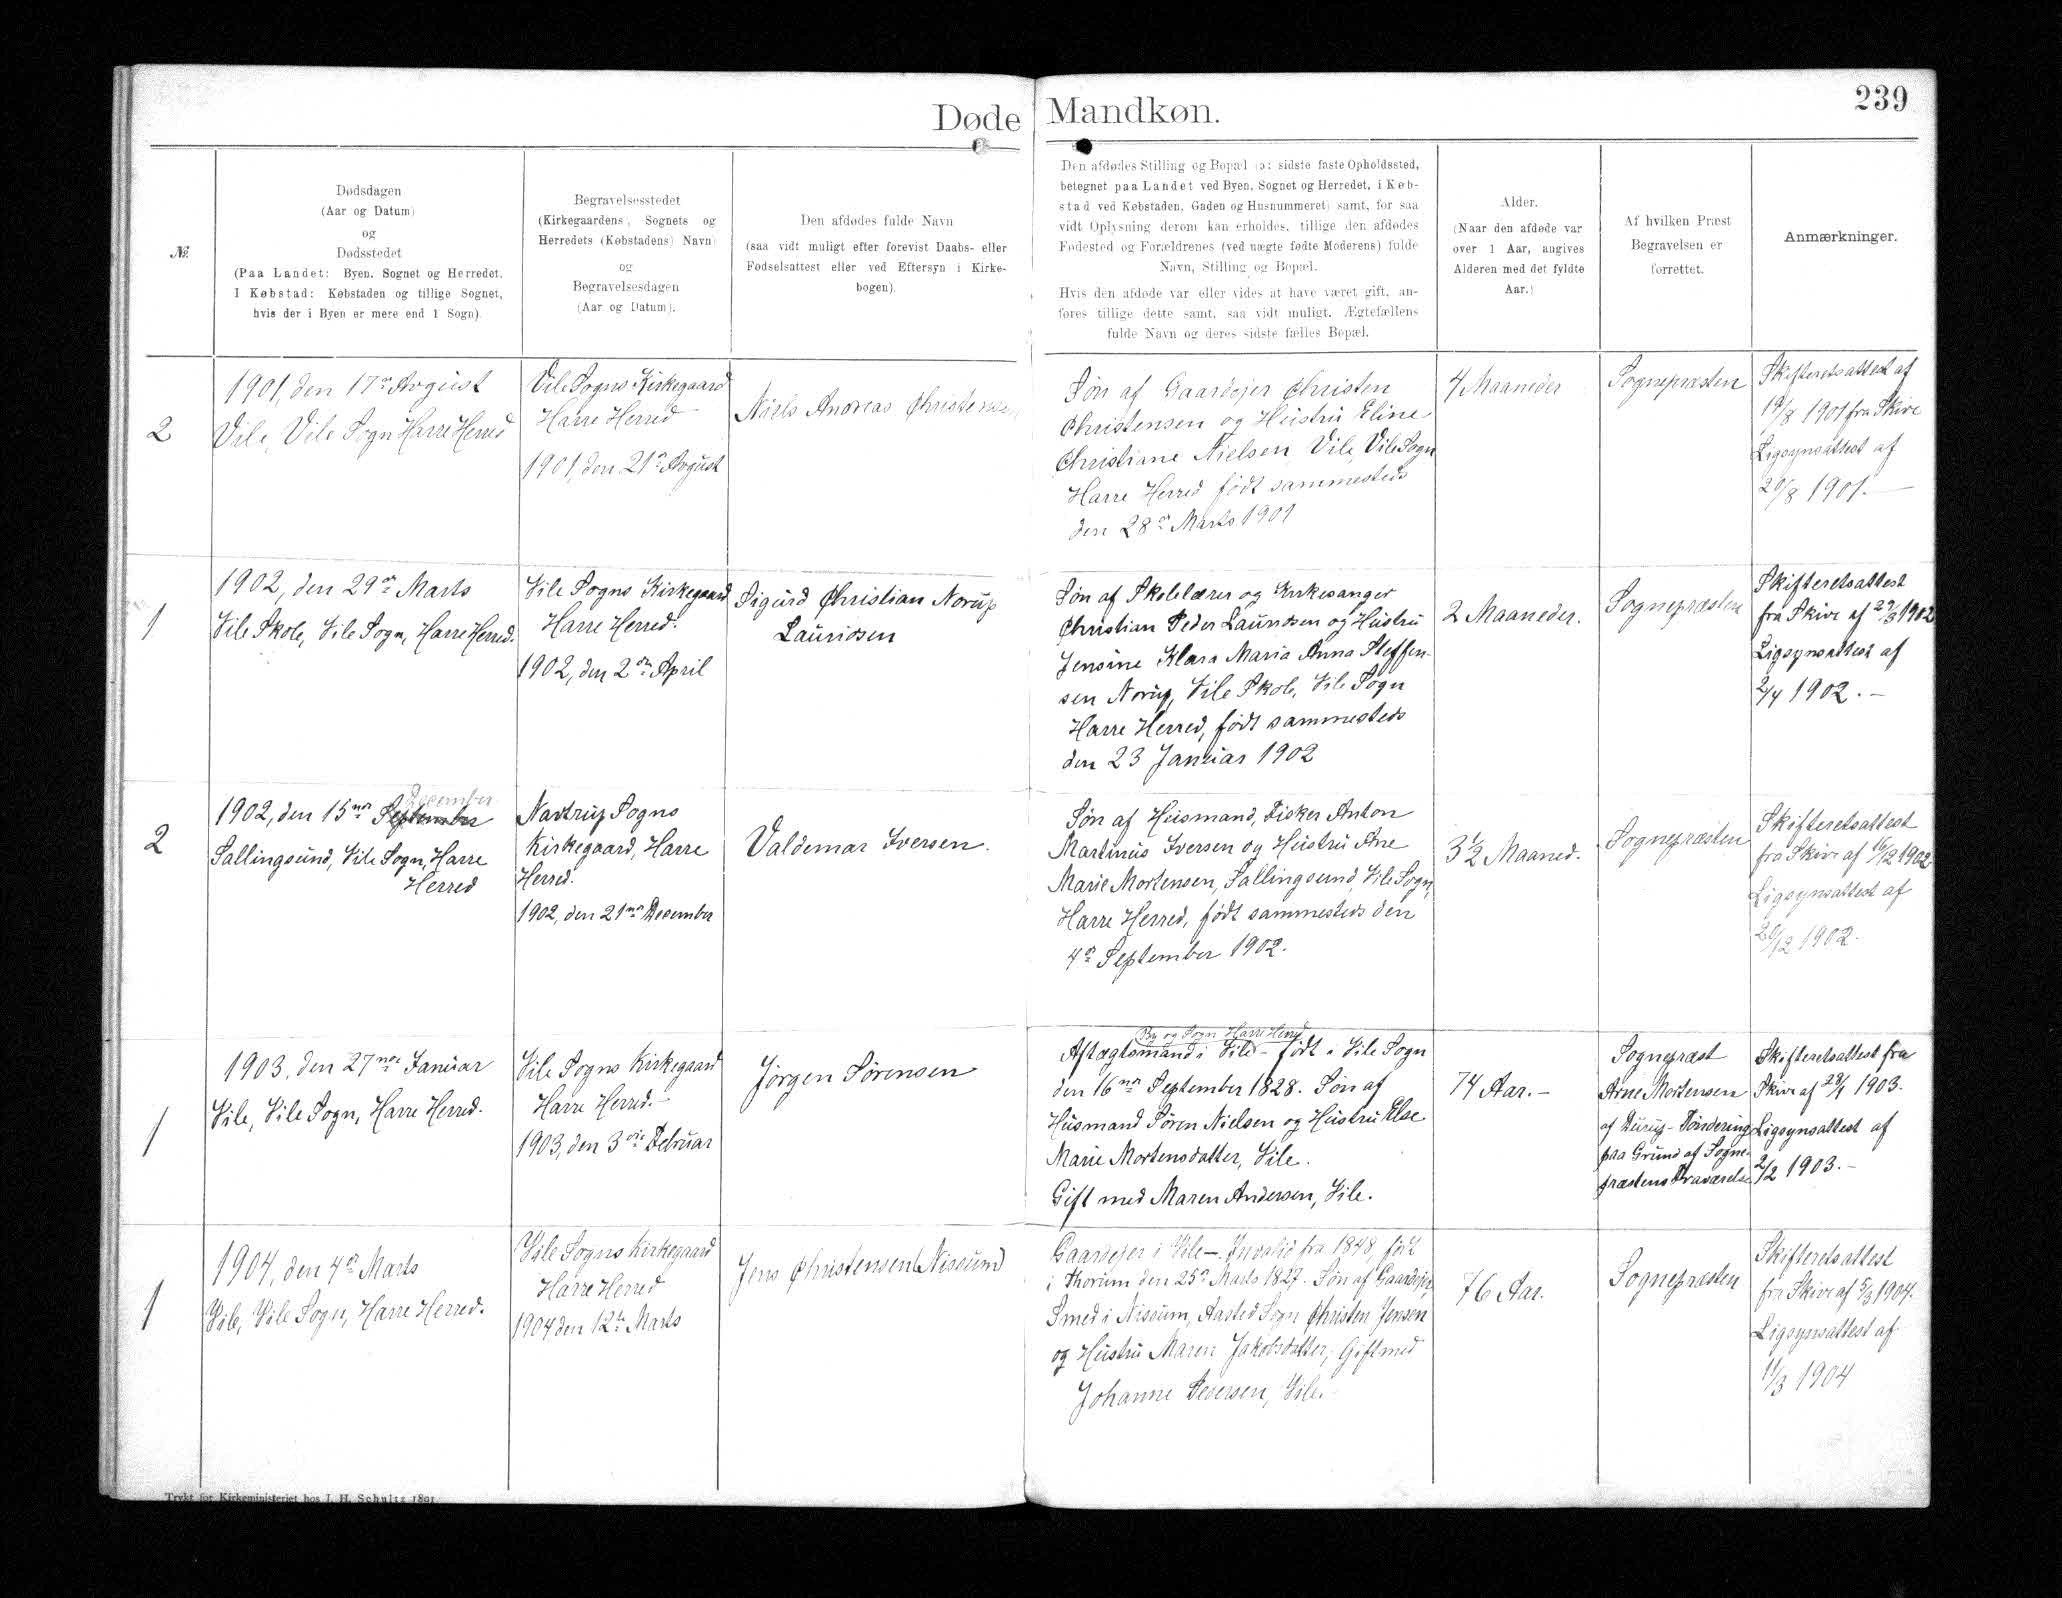 239
Døde Mandkøn.
№
Dødsdagen
(Aar og Datum)
og
Dødsstedet
(Paa Landet: Byen, Sognet og Herredet.
I Købstad: Købstaden og tillige Sognet,
hvis der i Byen er mere end 1 Sogn).
Begravelsesstedet
(Kirkegaardens, Sognets og
Herredets (Købstadens) Navn)
og
Begravelsesdagen
(Aar og Datum).
Den afdødes fulde Navn
(saa vidt muligt efter forevist Daabs- eller
Fødselsattest eller ved Eftersyn i Kirke-
bogen).
Den afdødes Stilling og Bopæl (ɔ: sidste faste Opholdssted,
betegnet paa Landet ved Byen, Sognet og Herredet, i Køb-
stad ved Købstaden, Gaden og Husnummeret) samt, for saa
vidt Oplysning derom kan erholdes, tillige den afdødes
Fødested og Forældrenes (ved uægte fødte Moderens) fulde
Navn, Stilling og Bopæl.
Hvis den afdøde var eller vides at have været gift, an-
føres tillige dette samt, saa vidt muligt, Ægtefællens
fulde Navn og deres sidste fælles Bopæl.
Alder.
(Naar den afdøde var
over 1 Aar, angives
Alderen med det fyldte
Aar.)
Af hvilken Præst
Begravelsen er
forrettet.
Anmærkninger.
2
1901, den 17de Avgust
Vile, Vile Sogn Harre Herred
Vile Sogns Kirkegaard
Harre Herred
1901, den 21de Avgust
Niels Andreas Christensen
Søn af Gaardejer Christen
Christensen og Hustru Eline
Christiane Nielsen Vile, Vile Sogn
Harre Herred født sammesteds
den 28de Marts 1901
4 Maaneder
Sognepræsten
Skifteretsattest af
19/8 1901 fra Skive
Ligsynsattest af
20/8 1901. —
1
1902, den 29de Marts
Vile Skole, Vile Sogn, Harre Herred.
Vile Sogns Kirkegaard
Harre Herred.
1902, den 2den April
Sigurd Christian Norup
Lauridsen
Søn af Skolelærer og Kirkesanger
Christian Peder Lauridsen og Hustru
Jensine Klara Maria Anna Steffen-
sen Norup, Vile Skole, Vile Sogn
Harre Herred, født sammesteds
den 23 Januar 1902
2 Maaneder.
Sognepræsten
Skifteretsattest
fra Skive af 29/3 1902
Ligsynsattest af
2/4 1902. —
2
December
1902, den 15nde September
Sallingsund, Vile Sogn, Harre
Herred
Nautrup Sogns
Kirkegaard, Harre
Herred.
1902, den 21nde December
Valdemar Iversen.
Søn af Husmand, Fisker Anton
Martinus Iversen og Hustru Ane
Marie Mortensen, Sallingsund, Vile Sogn,
Harre Herred, født sammesteds den
4de September 1902.
3½ Maaned.
Sognepræsten
Skifteretsattest
fra Skive af 16/12 1902
Ligsynsattest af
20/12 1902.
1
1903, den 27nde Januar
Vile, Vile Sogn, Harre Herred.
Vile Sogns Kirkegaard
Harre Herred. —
1903, den 3die Februar
Jørgen Sørensen
By og Sogn Harre Herred
Aftægtsmand i Vile – født i Vile Sogn
den 16nde September 1828. Søn af
Husmand Søren Nielsen og Hustru Else
Marie Mortensdatter, Vile.
Gift med Maren Andersen, Vile.
74 Aar. —
Sognepræst
Arne Mortensen
af Durup-Tøndering
paa Grund af Sogne-
præstens Fraværelse
Skifteretsattest fra
Skive af 28/1 1903.
Ligsynsattest af
2/2 1903. —
1
1904, den 4de Marts
Vile, Vile Sogn, Harre Herred.
Vile Sogns Kirkegaard
Harre Herred
1904 den 12te Marts
Jens Christensen Nissum
Gaardejer i Vile —. Invalid fra 1848, født
i Thorum den 25de Marts 1827. Søn af Gaardejer,
Smed i Nissum, Aasted Sogn Christen Jensen
og Hustru Maren Jakobsdatter, Gift med
Johanne Pedersen, Vile.
76 Aar.
Sognepræsten
Skifteretsattest
fra Skive af 5/3 1904.
Ligsynsattest af
11/3 1904
Trykt for Kirkeministeriet hos J. H. Schultz 1891